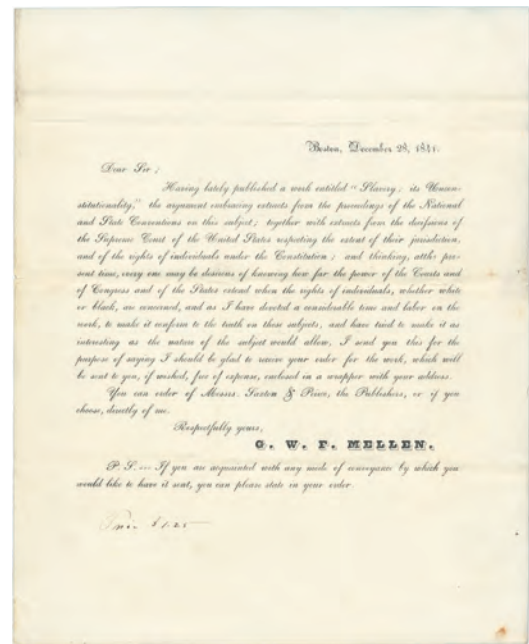 Boston, December 28, 1841.
Dear Sir;
Having lately published a work entitled "Slavery; its Uncon-
stitutionality," the argument embracing extracts from the proceedings of the National
and State Conventions on this subject; together with extracts from the decisions of
the Supreme Court of the United States respecting the extent of their jurisdiction,
and of the rights of individuals under the Constitution; and thinking, at the pre-
sent time, every one may be desirous of knowing how far the power of the Courts and
of Congress and of the States extend when the rights of individuals, whether white
or black, are concerned, and as I have devoted a considerable time and labor on the
work, to make it conform to the truth on these subjects, and have tried to make it as
interesting as the nature of the subject would allow, I send you this for the
purpose of saying I should be glad to receive your order for the work, which will
be sent to you, if wished, free of expense, enclosed in a wrapper with your address.
You can order of Messrs. Saxton & Peirce, the Publishers, or if you
choose, directly of me.
Respectfully yours,
G. W. F. MELLEN.
P. S. --- If you are acquainted with any mode of conveyance by which you
would like to have it sent, you can please state in your order.
Price $1.25